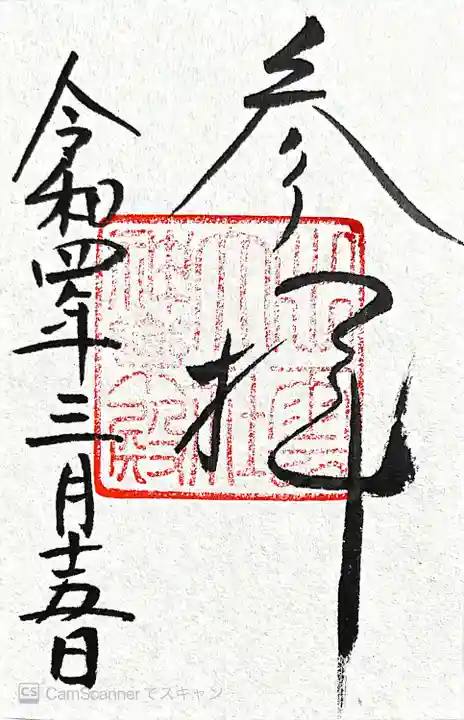 参拝
令和四年三月十五日
CS CamScannerでスキャン